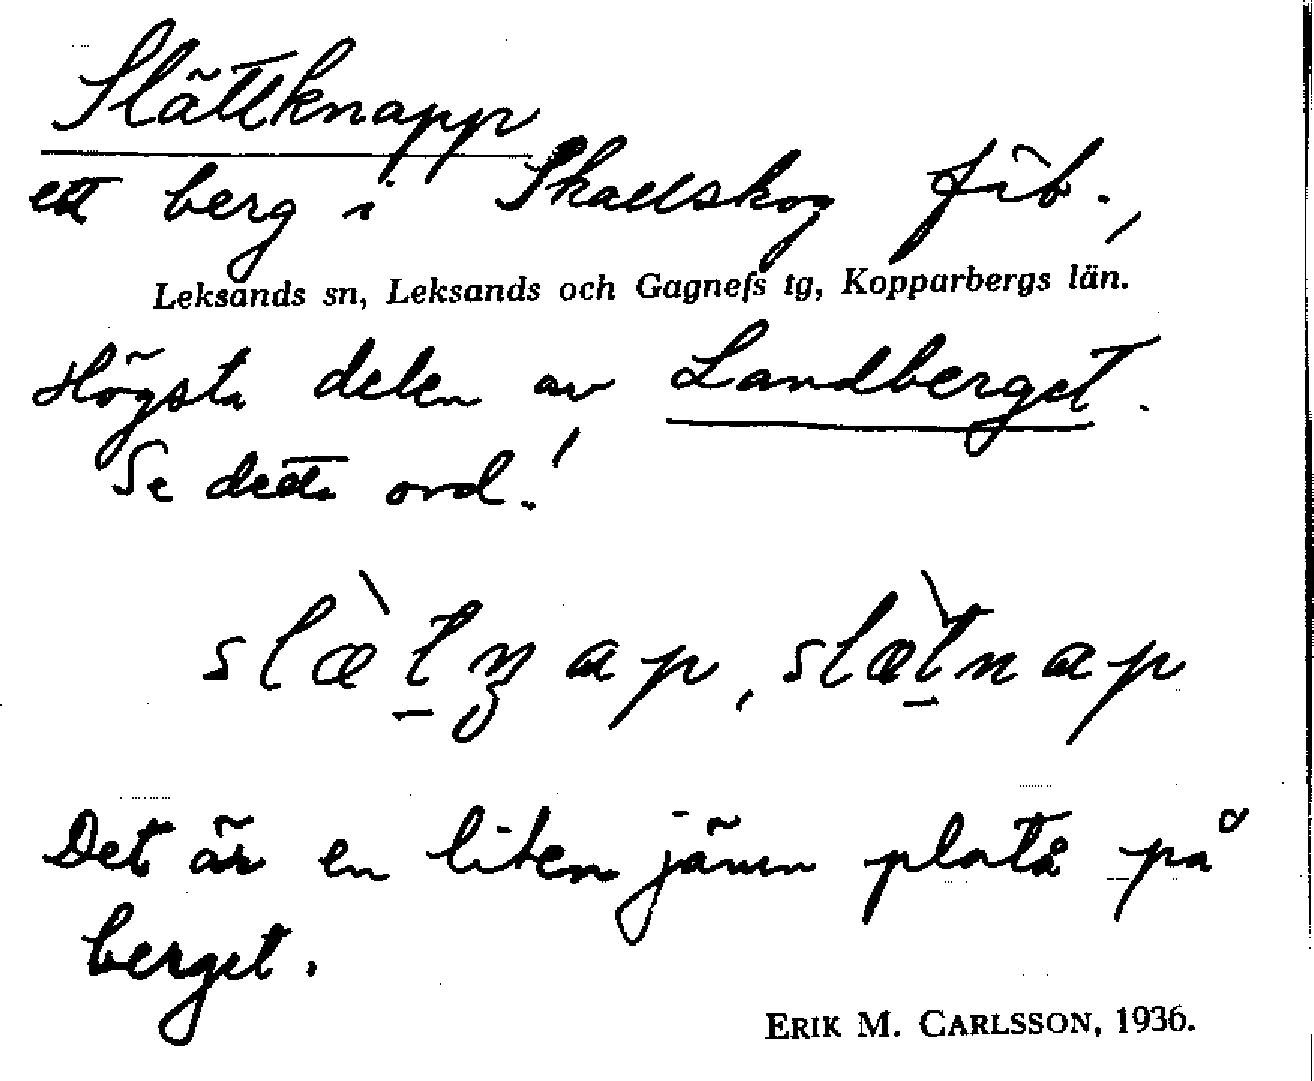 Slättknapp
ett berg i Skallskog fäb.,
Leksands sn, Leksands och Gagnefs tg, Kopparbergs län.
Högsta delen av Landberget.
Se detta ord!
Det är en liten jämn platå på
berget.
ERIK M. CARLSSON, 1936.